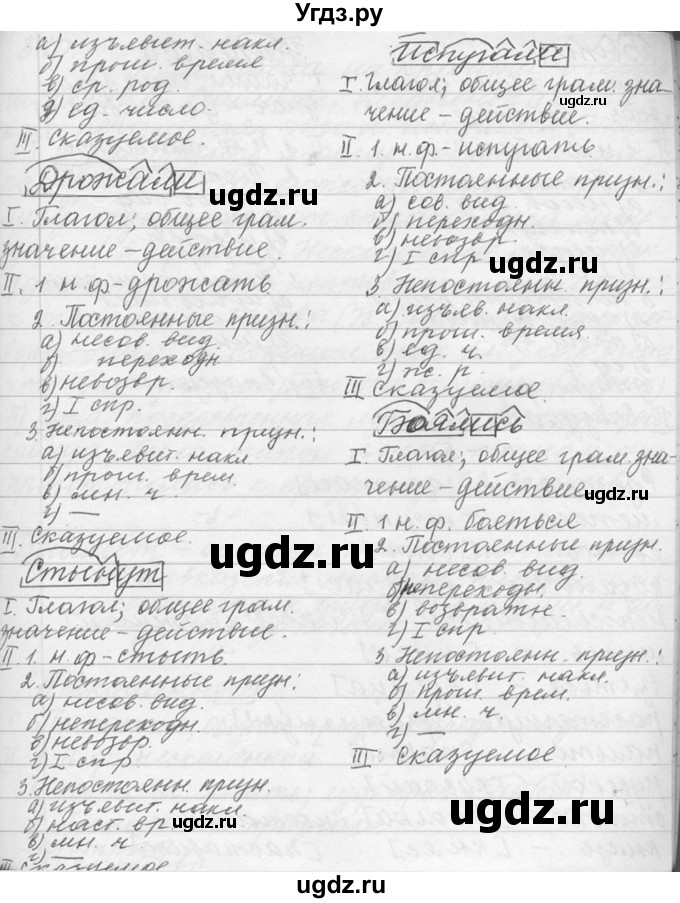 Угдз.ру
а) изъявит. накл.
б) прош. время
в) ср. род.
г) ед. число.
III. Сказуемое.
Дрожали
I. Глагол; общее грам.
значение – действие.
II. 1 н.ф. – дрожать
2. Постоянные призн.:
а) несов. вид.
б) переходн
в) невозвр.
г) I спр.
3. Непостоянн. призн.:
а) изъявит. накл
б) прош. врем.
в) мн. ч.
г) —
III. Сказуемое.
Стынут
I. Глагол; общее грам.
значение – действие.
II. 1. н.ф – стыть
2. Постоянные призн:
а) несов. вид.
б) непереходн.
в) невозвр.
г) I спр
3. Непостоянн. призн.
а) изъявит. накл.
б) наст. вр
в) мн. ч
г) —
III Сказуемое
Испугали
I. Глагол; общее грам. зна-
чение – действие.
II. 1. н.ф. – испугать
2. Постоянные призн.:
а) сов. вид
б) переходн.
в) невозвр.
г) I спр
3. Непостоянн. призн.:
а) изъяв. накл.
б) прош. время.
в) ед. ч.
г) ж. р.
III Сказуемое.
Боялись
I. Глагол; общее грам. зна-
чение – действие
II. 1 н.ф. бояться
2. Постоянные призн.
а) несов. вид.
б) непереходн.
в) возвратн.
г) I спр.
3. Непостоянн. призн.:
а) изъявит. накл.
б) прош. врем.
в) мн. ч.
г) —
III Сказуемое
ugdz.ru
ugdz.ru
ugdz.ru
ugdz.ru
ugdz.ru
ugdz.ru
ugdz.ru
ugdz.ru
ugdz.ru
ugdz.ru
ugdz.ru